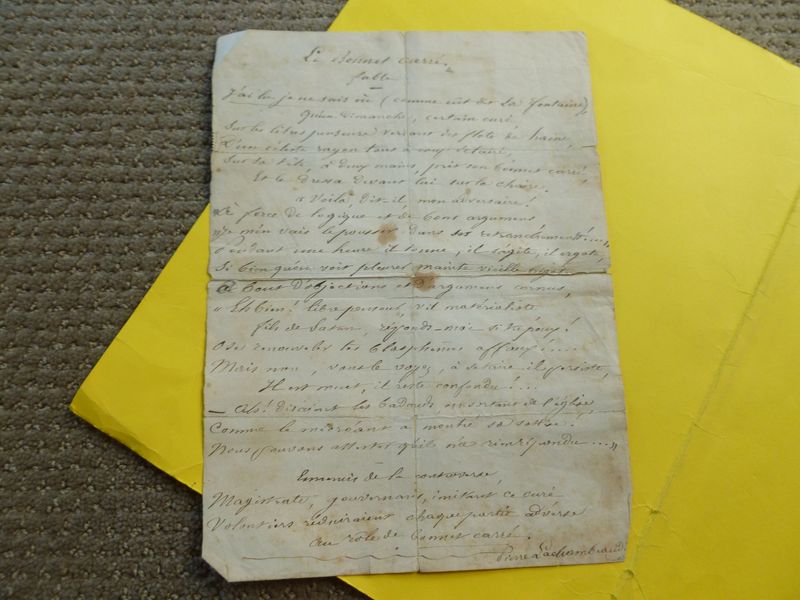 Le Bonnet carré.
fable
J'ai lu je ne sais où (comme eut dit La Fontaine)
Qu'un dimanche, certain curé
Sur les libres penseurs versant des flots de haine,
D'un céleste rayon tout à coup éclairé,
Sur sa tête, à deux mains, prit son bonnet carré
Et le dressa devant lui sur la chaire.
« Voilà, dit-il, mon adversaire!
« À force de logique et de bons argumens
« Je m'en vais le pousser dans ses retranchements!...»
Pendant une heure il tonne, il s'agite, il ergote,
Si bien qu'on voit pleurer mainte vieille bigote
À bout d'objections et d'argumens cornus,
« Eh bien! libre penseur, vil matérialiste
fils de Satan, réponds-moi si tu peux!
Ose renouveler tes blasphèmes affreux!...
Mais non, vous le voyez, à se taire il persiste,
Il est muet, il reste confondu!...
— Ah! disaient les badauds, en sortant de l'église,
Comme le mécréant a montré sa sottise!
Nous pouvons attester qu'il n'a rien répondu....»
Ennemis de la controverse,
Magistrats, gouvernans, imitant ce curé
Volontiers réduiraient chaque partie adverse
Au rôle de bonnet carré.
Pierre Lachambeaudie